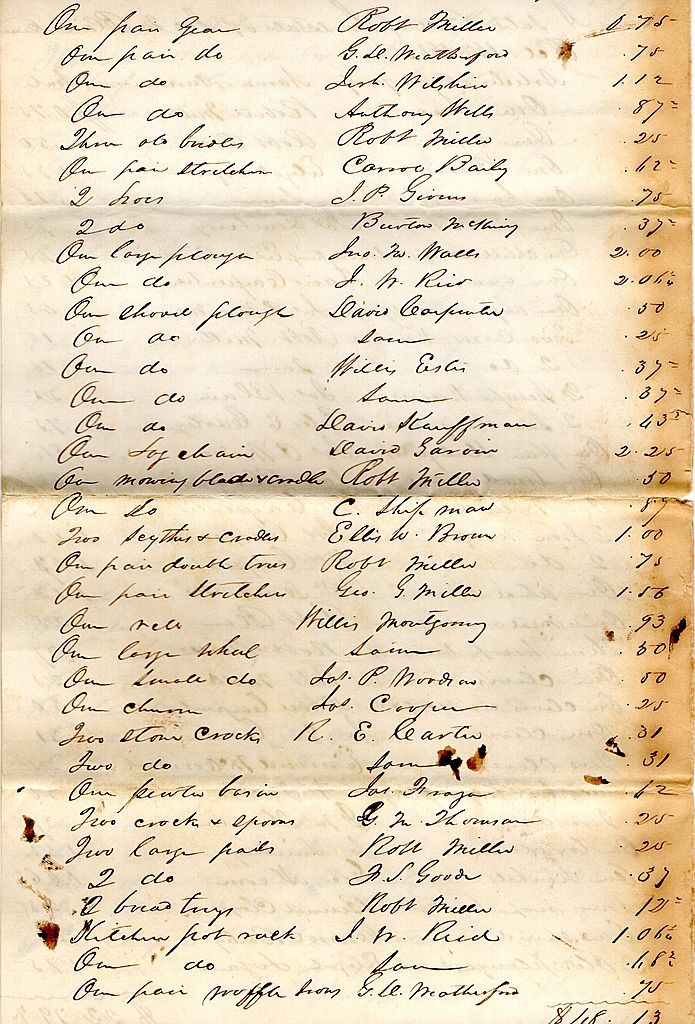 One pair Gear Robt Miller 0.75
One pair do G. D. Weatherford .75
One do Josh. Wilshire 1.12
One do Anthony Wells .87
Three old bridles Robt Miller .25
One pair stretchers Carrol Baily .62
2 hoes J. P. Givens .75
2 do Burton McKinny .37
One large plough Jno. M. Walls 2.00
One do J. W. Reid 2.06¼
One shovel plough David Carpenter .50
One do Same .25
One do Willis Estis .37
One do Same .37
One do David Kauffman .43
One Log chain David Garvin 2.25
One mowing blade & cradle Robt Miller .50
One do C. Shipman .87
Two scythes & cradles Ellis W. Brown 1.00
One pair double trees Robt Miller .75
One pair stretchers Geo. G. Miller 1.56
One reel Willis Montgomy .93
One large wheel Same .50
One small do Jas. P. Woodson .50
One churn Jas. Cooper .25
Two stone crocks R. E. Carter .31
Two do Same .31
One pewter basin Jas. .62
Two crocks & spoons G. M. Thomson .25
Two large pails Robt Miller .25
2 do F. S. Goode .37
2 bread trays Robt Miller .12
Kitchen pot rack J. W. Reid 1.06¼
One do Same .68
One pair waffle irons G. D. Weatherford .75
13